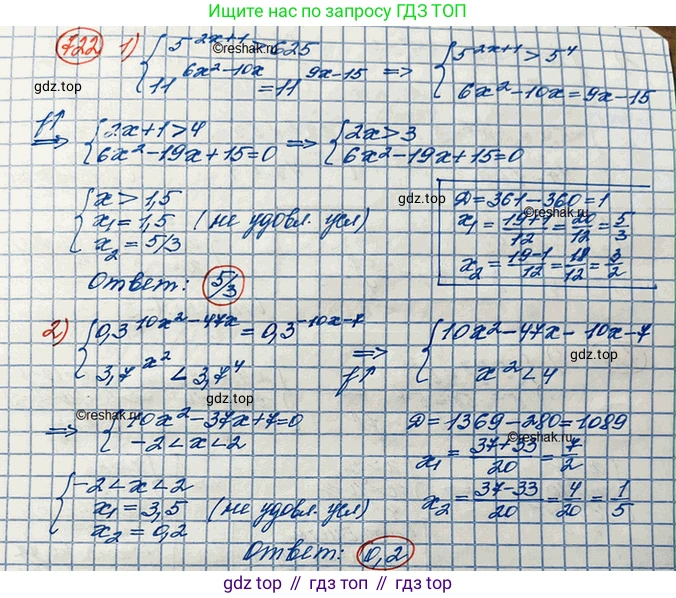 Ищите нас по запросу ГДЗ ТОП
722 1) { 5^(2x+1) > 625 ⇒ { 5^(2x+1) > 5^4
©reshak.ru
11^(6x²-10x) = 11^(9x-15) 6x²-10x=9x-15
gdz.top
f↑ ⇒ { 2x+1>4 ⇒ { 2x>3
6x²-19x+15=0 6x²-19x+15=0
{ x>1,5
x₁=1,5 (не удовл. усл)
x₂=5/3
gdz.top
D=361-360=1
©reshak.ru
x₁=(19+1)/12=20/12=5/3
x₂=(19-1)/12=18/12=3/2
Ответ: 5/3
2) { 0,3^(10x²-47x) = 0,3^(-10x-7) ⇒ { 10x²-47x-10x-7
3,7^(x²) < 3,7^4 f↑ x²<4
gdz.top
gdz.top
©reshak.ru
⇒ { 10x²-37x+7=0
-2<x<2
D=1369-280=1089
©reshak.ru
x₁=(37+33)/20=7/2
x₂=(37-33)/20=4/20=1/5
{ -2<x<2
x₁=3,5 (не удовл. усл)
x₂=0,2
Ответ: 0,2
gdz.top // гдз.топ // gdz.top